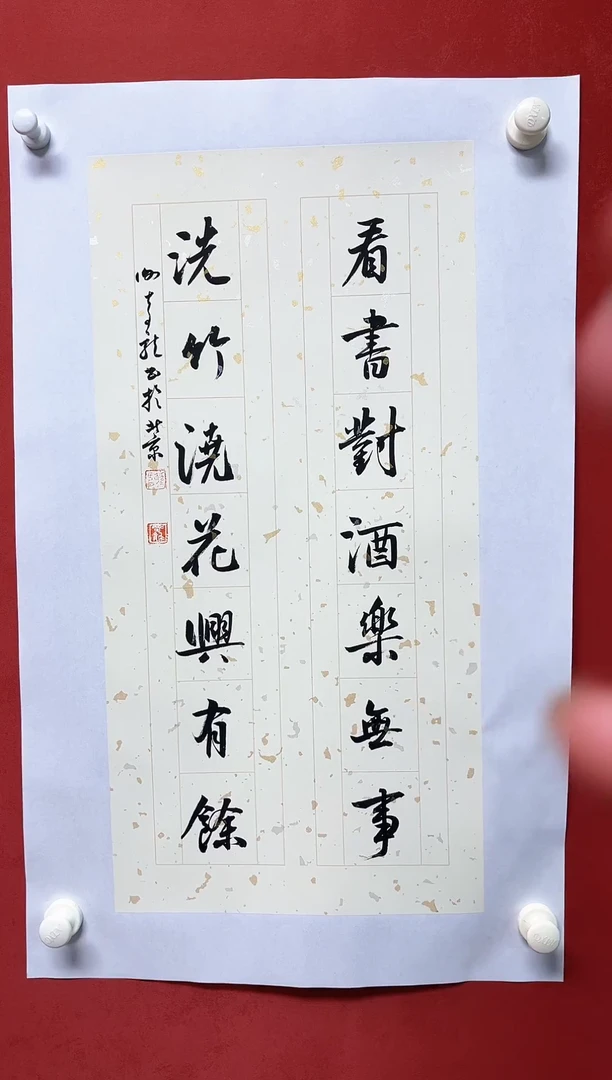 看書對酒樂無事
洗竹澆花興有餘
書於北京